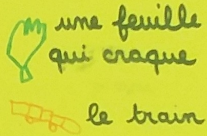 une feuille
qui craque
le train